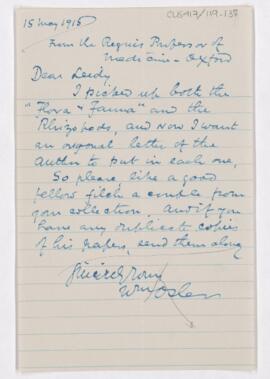 CUS417/119.138
15 May 1915
From the Regius Professor of
Medicine - Oxford
Dear Leidy
I picked up both the
"Flora & Fauna" and the
Rhizopods, and now I want
an original letter of the
author to put in each one,
So please like a good
fellow filch a couple from
your collection. And if you
have any duplicate copies
of his papers, send them along
Sincerely yours
Wm Osler